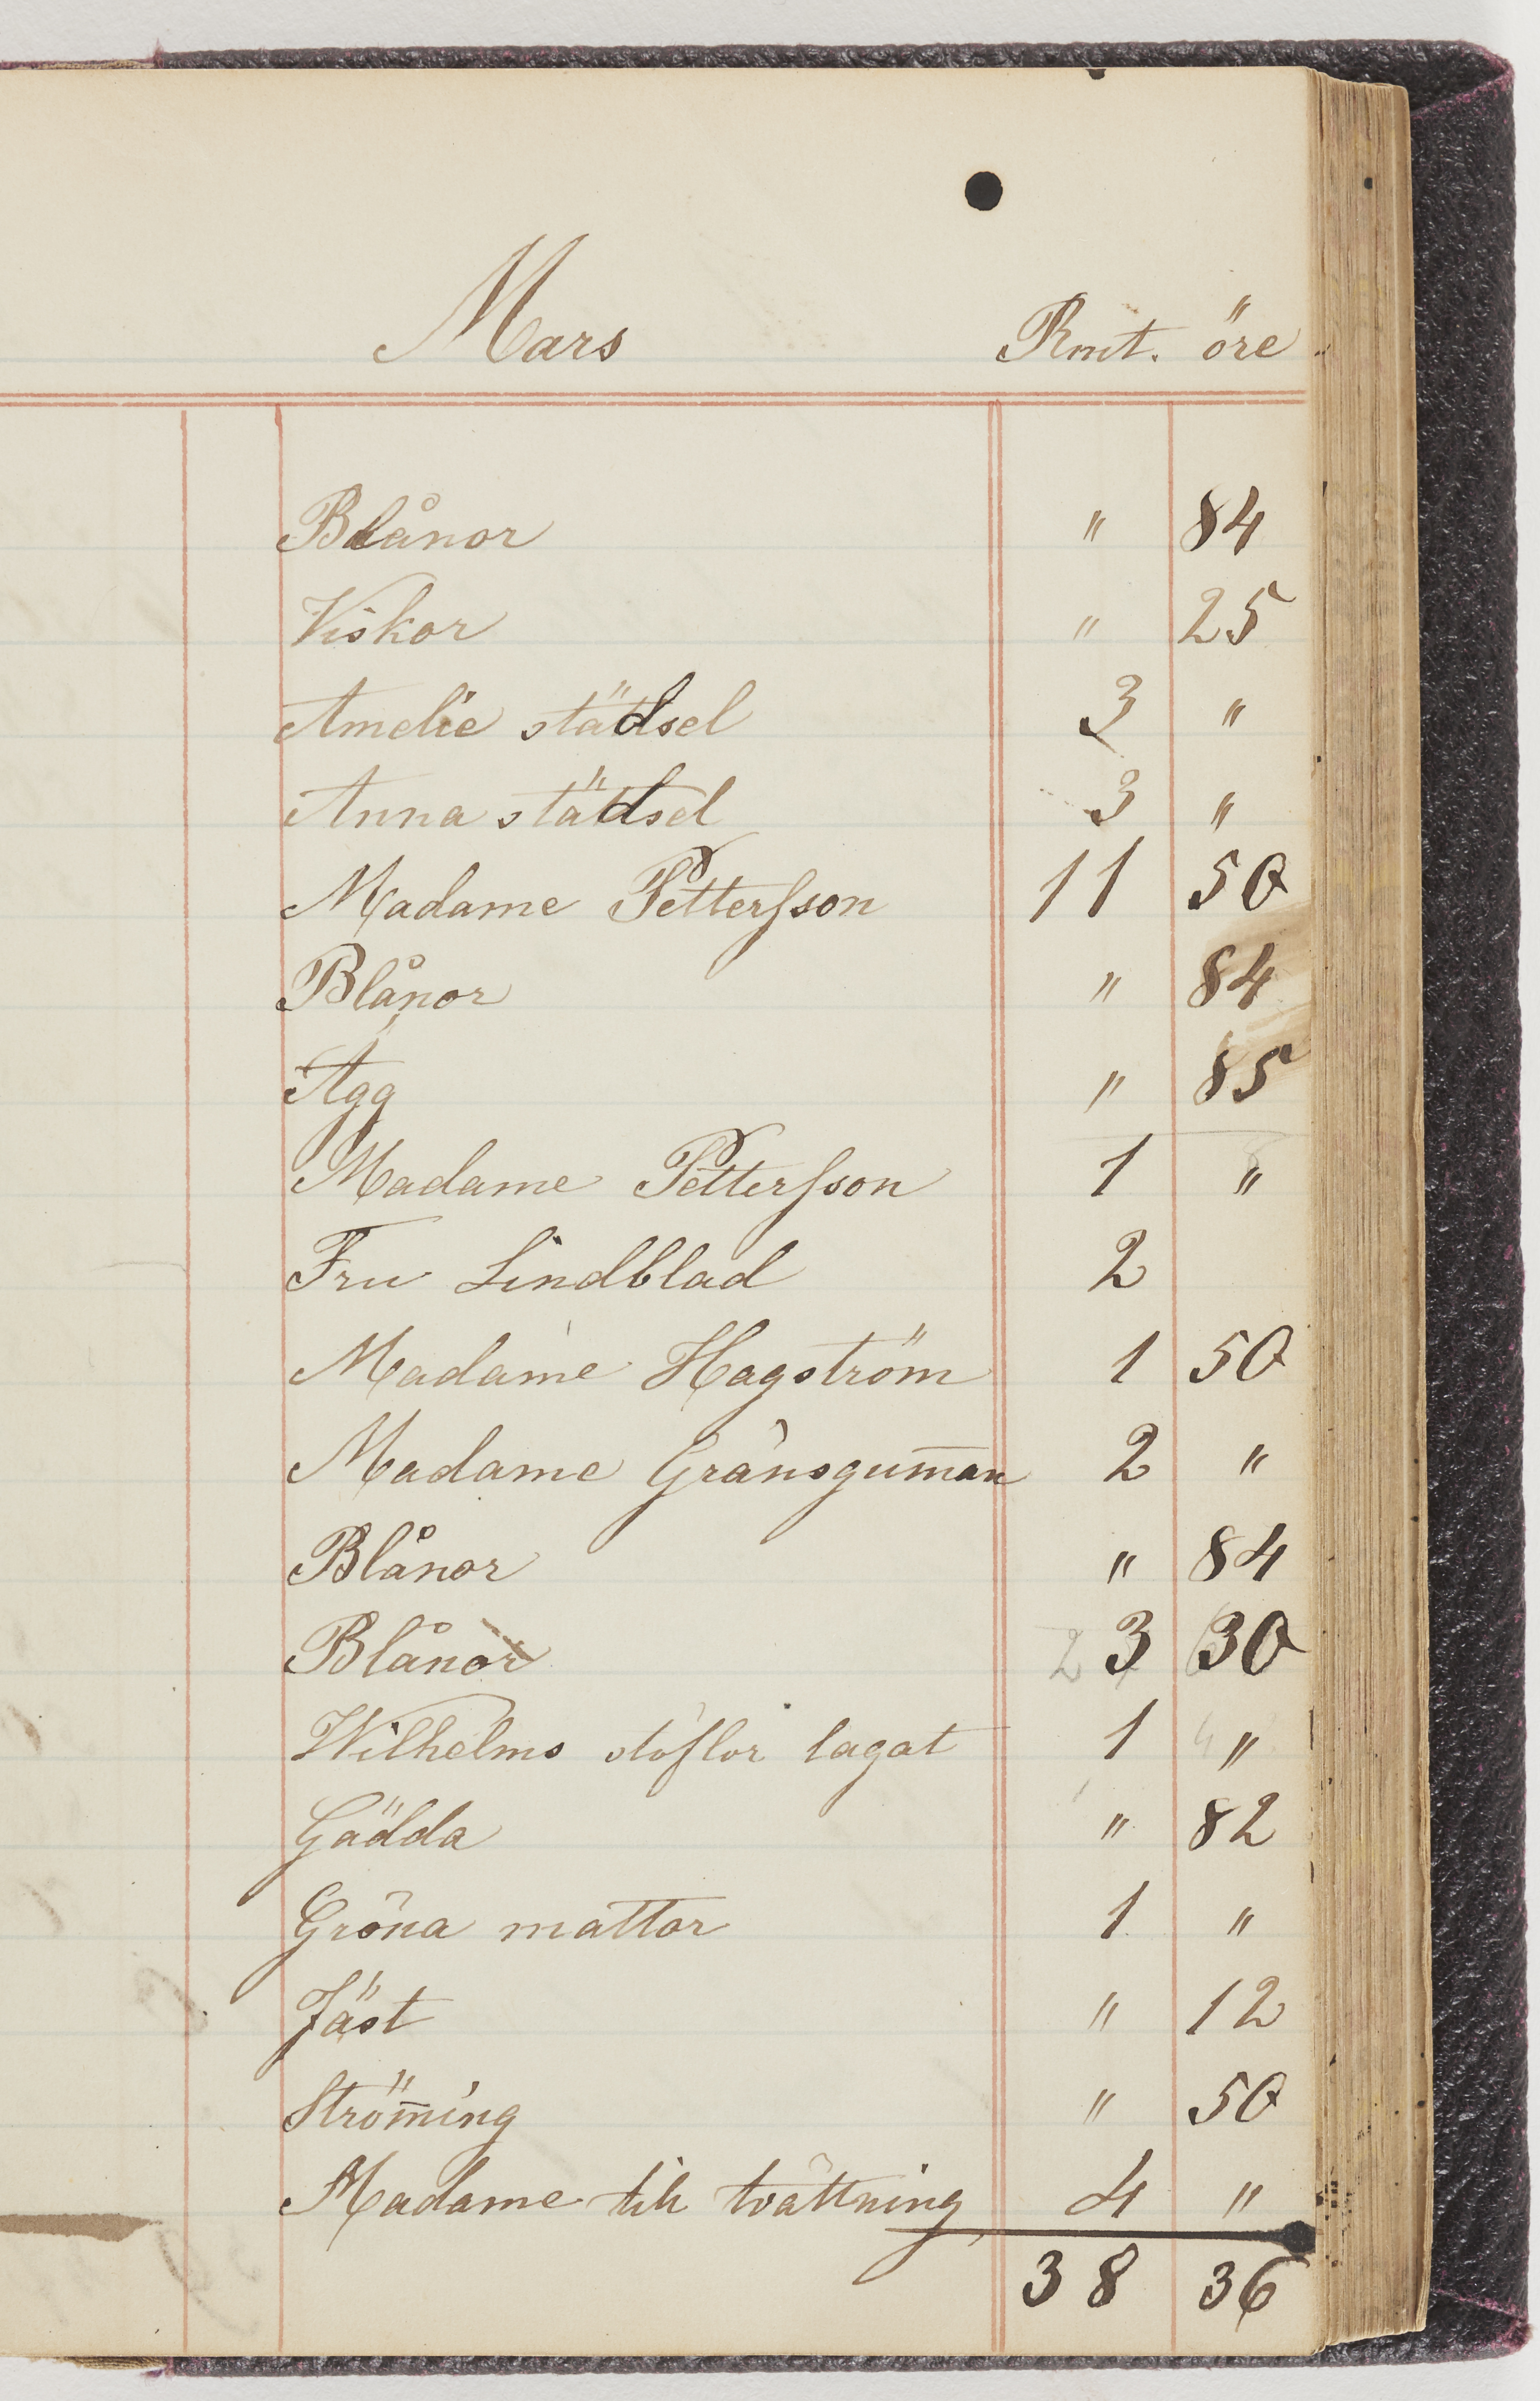 Mars Rmt. öre
Blånor " 84
Viskor " 25
Amelie städsel 3 "
Anna städsel 3 "
Madame Pettersson 11 50
Blånor " 84
Ägg " 85
Madame Pettersson 1 "
Fru Lindblad 2
Madame Hagström 1 50
Madame Gränsgum̅an 2 "
Blånor " 84
Blånor 3 30
Wilhelms stöflor lagat 1 "
Gädda " 82
Gröna mattor 1 "
Jäst " 12
Ström̅ing " 50
Madame till tvättning 4 "
38 36